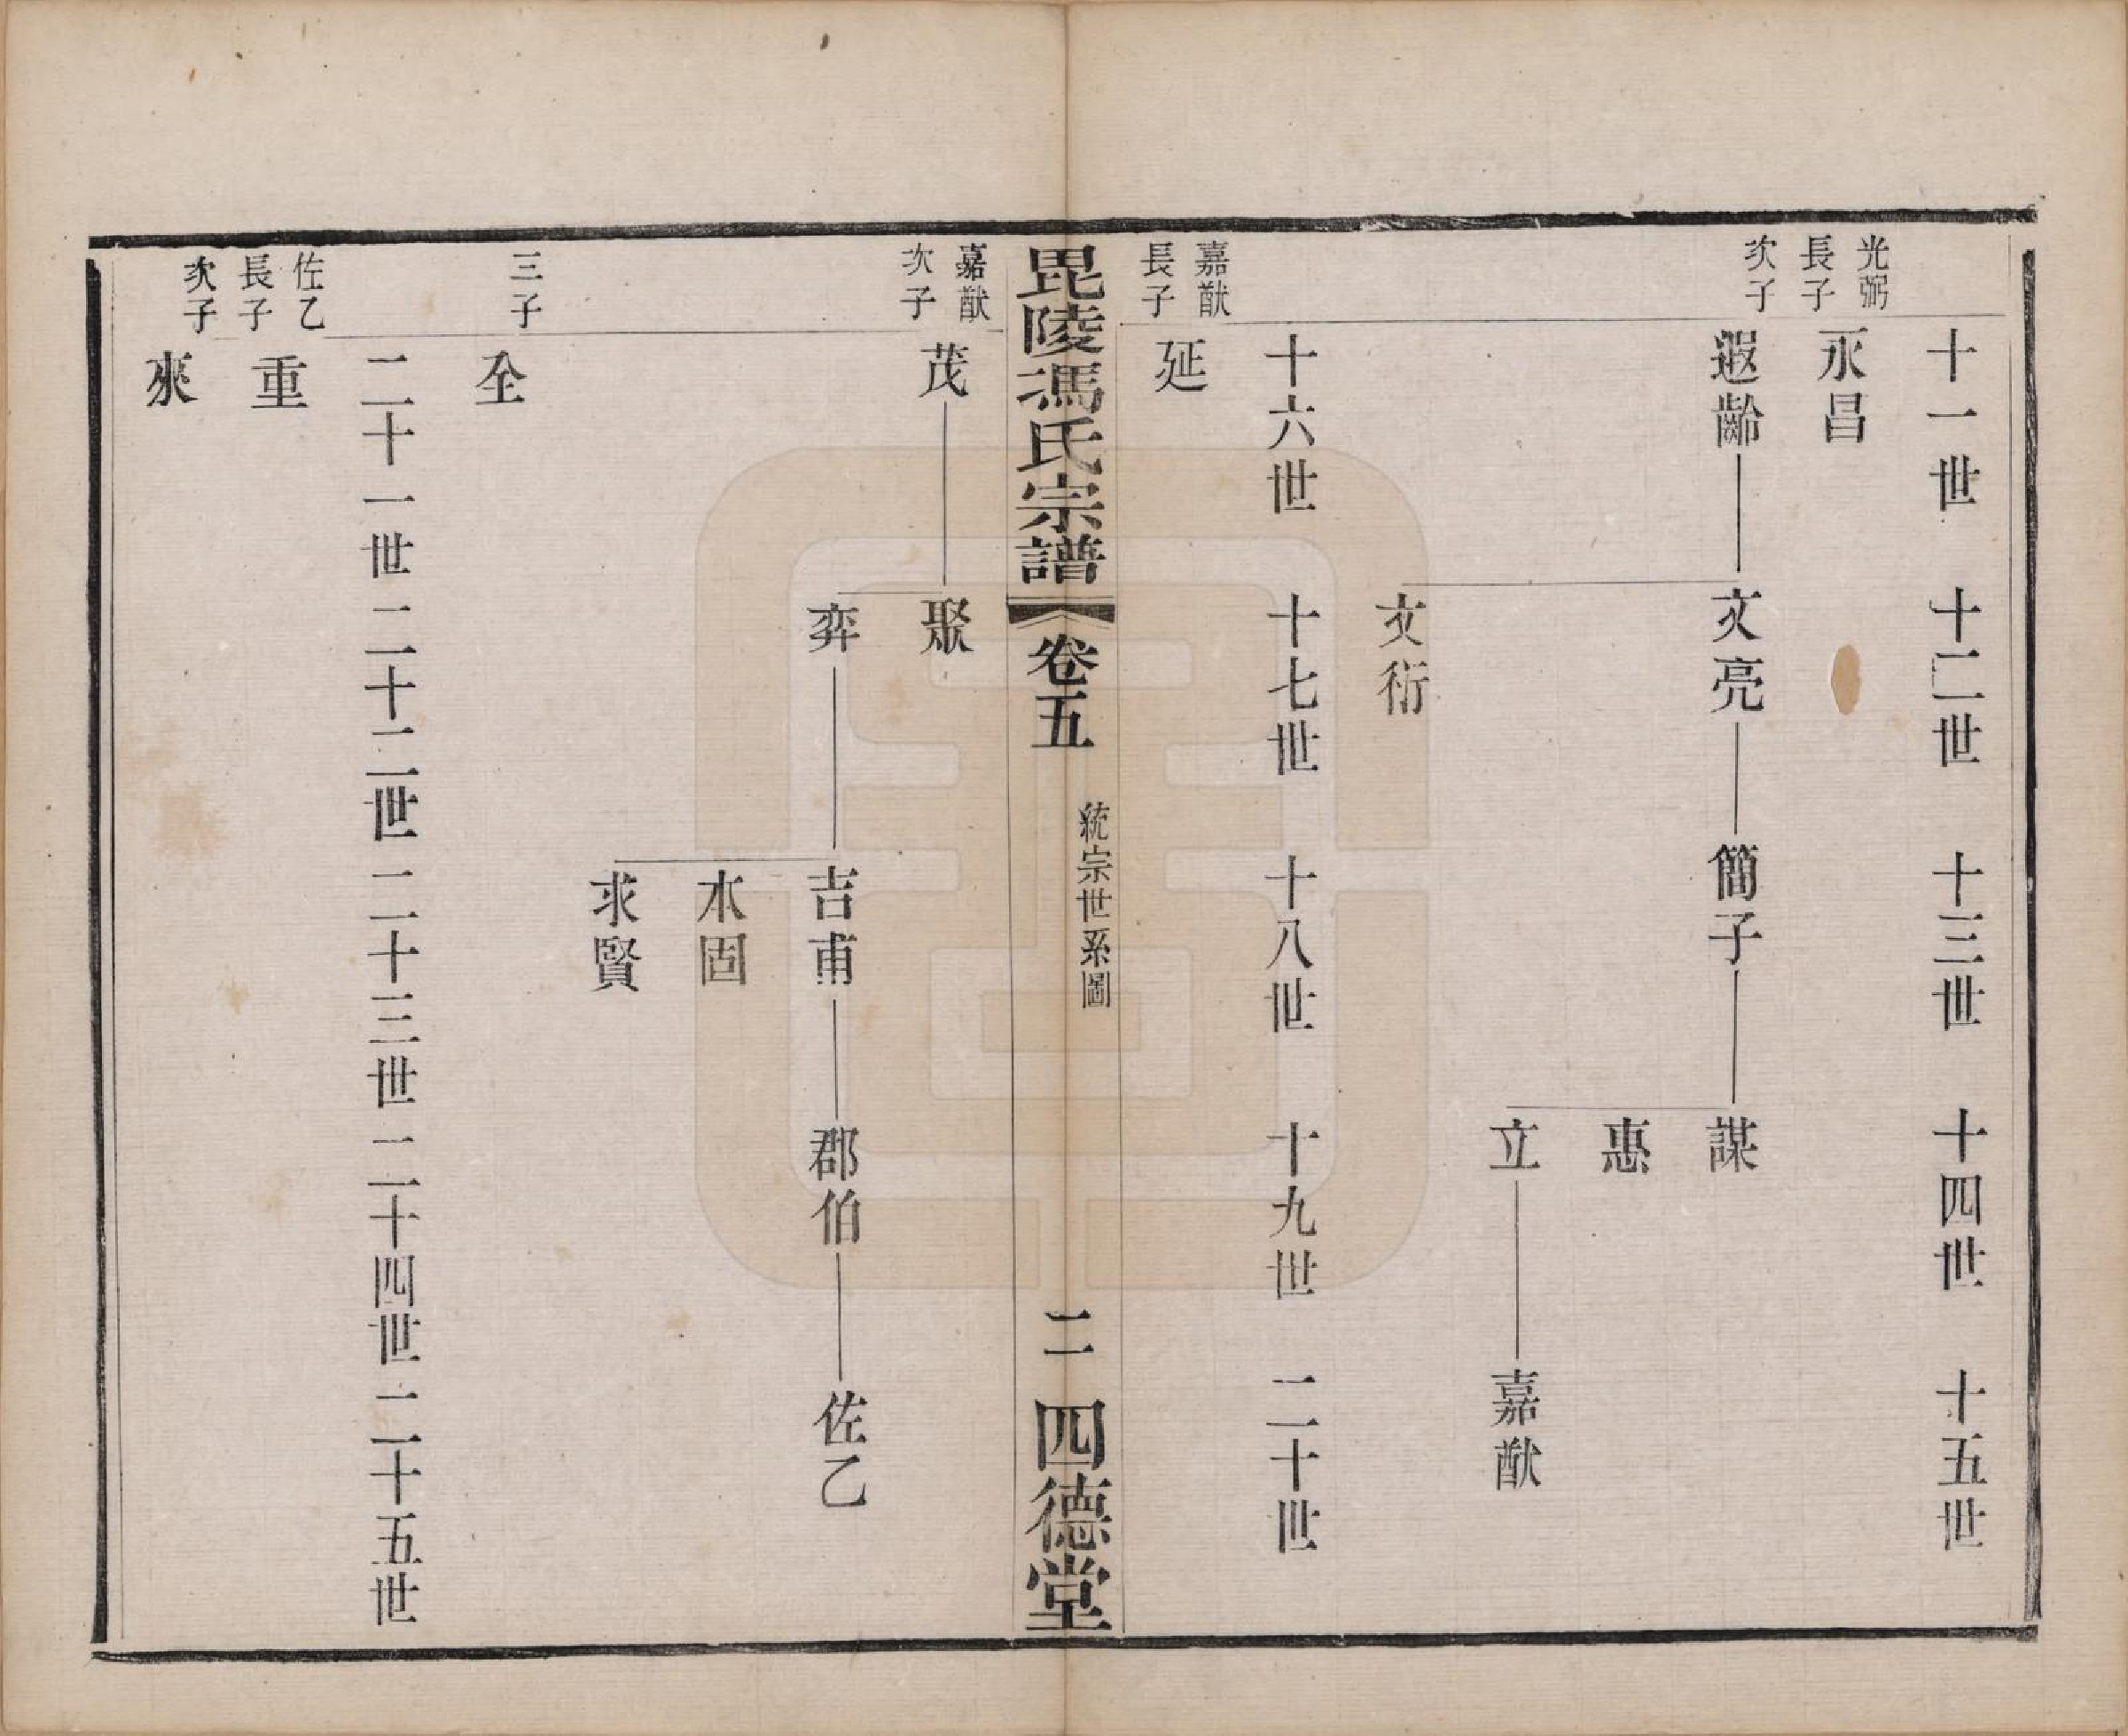 十一世　十二世　十三世　十四世　十五世
光弼
長子
永昌
次子
遐齡　文亮　簡子　謀
惠
立　嘉猷
文衍
十六世　十七世　十八世　十九世　二十世
嘉猷
長子
延
毘陵馮氏宗譜　卷五　統宗世系圖　二　四德堂
嘉猷
次子
茂　聚
弈　吉甫　郡伯　佐乙
永固
求賢
三子
全
二十一世　二十二世　二十三世　二十四世　二十五世
佐乙
長子
重
次子
爽